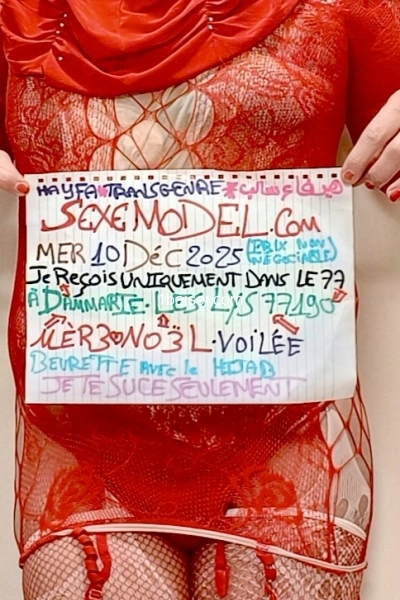 HAYFA*TRANSGENRE*هيفاء سالب
SEXEMODEL.Com
MER 10 DÉC 2025 (PRIX NON NÉGOCIABLE)
Je Reçois UNIQUEMENT DANS LE 77
À DAMMARIE. LES LYS 77190
MÈR3 NO3L.VOILÉE
BEURETTE AVEC le HIJAB
JE TE SUCE SEULEMENT